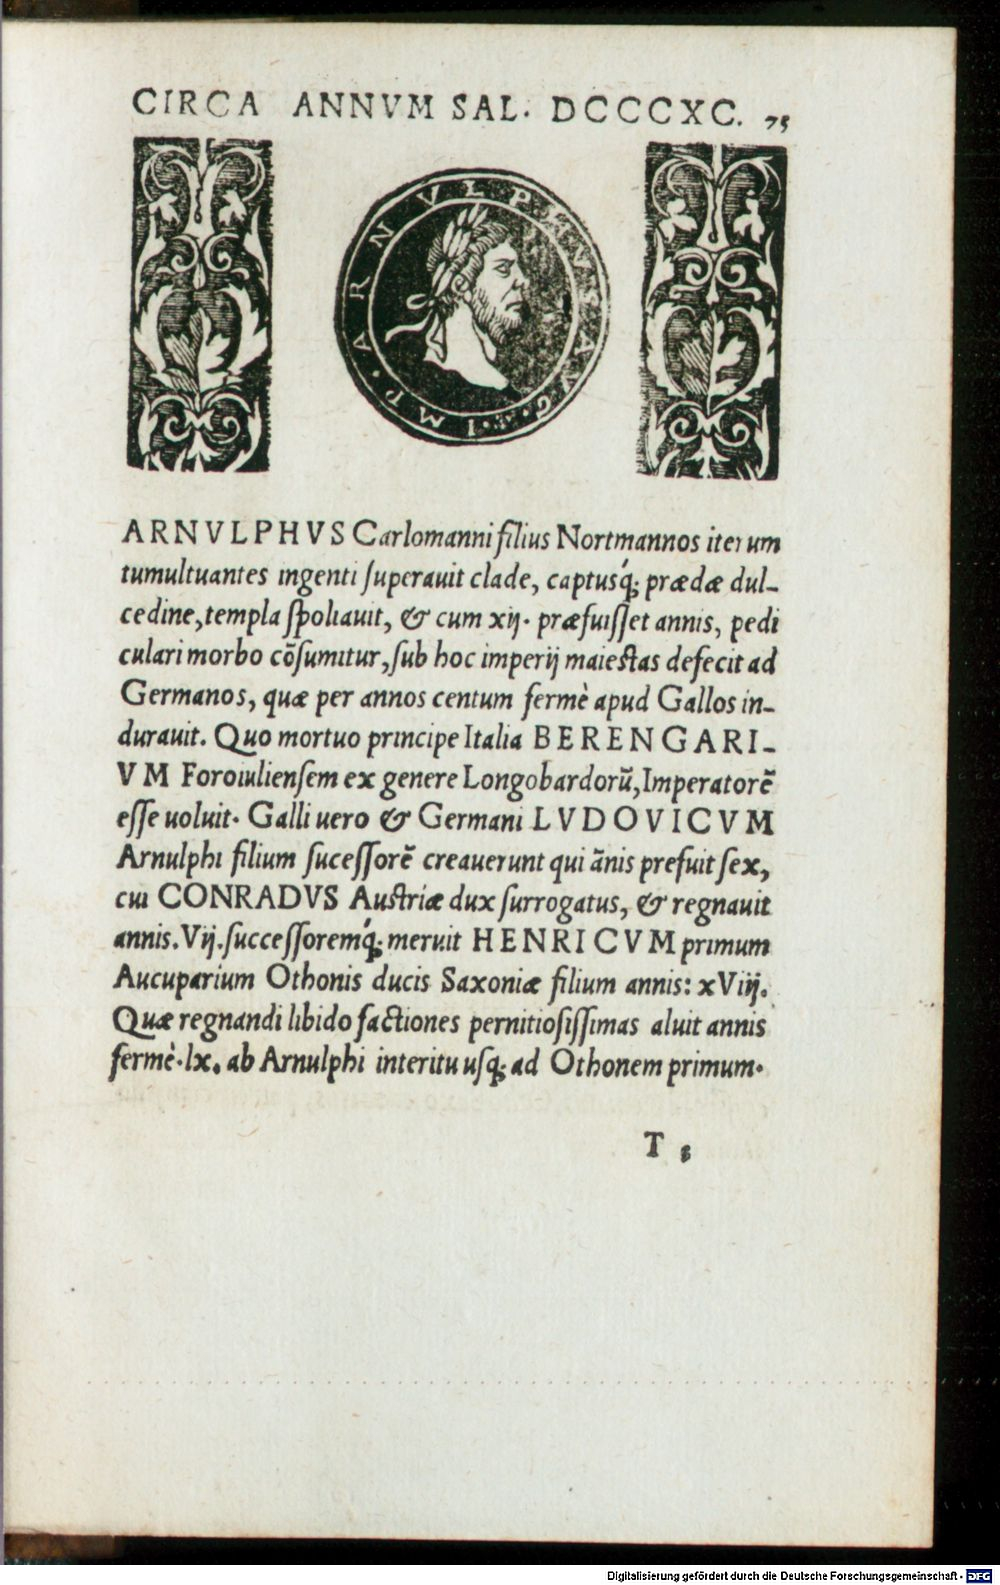 CIRCA ANNVM SAL. DCCCXC. 75
IMP. ARNVLPHVS AVG.
ARNVLPHVS Carlomanni filius Nortmannos iterum
tumultuantes ingenti ſuperauit clade, captusq́; prædæ dul-
cedine, templa ſpoliauit, & cum xij. præfuiſſet annis, pedi
culari morbo cōſumitur, ſub hoc imperij maieſtas defecit ad
Germanos, quæ per annos centum fermè apud Gallos in-
durauit. Quo mortuo principe Italia BERENGARI-
VM Foroiulienſem ex genere Longobardorū, Imperatorē
eſſe uoluit. Galli uero & Germani LVDOVICVM
Arnulphi filium ſuceſſorē creauerunt qui ānis prefuit ſex,
cui CONRADVS Auſtriæ dux ſurrogatus, & regnauit
annis. Vij. ſucceſſoremq́; meruit HENRICVM primum
Aucuparium Othonis ducis Saxoniæ filium annis: xViij.
Quæ regnandi libido factiones pernitioſiſſimas aluit annis
fermè. lx. ab Arnulphi interitu uſq; ad Othonem primum.
T 3
Digitalisierung gefördert durch die Deutsche Forschungsgemeinschaft - DFG